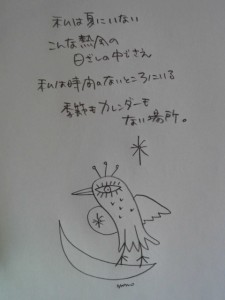 私は夏にいない
こんな熱風の
日ざしの中でさえ
私は時間のないところにいる
季節もカレンダーも
ない場所。